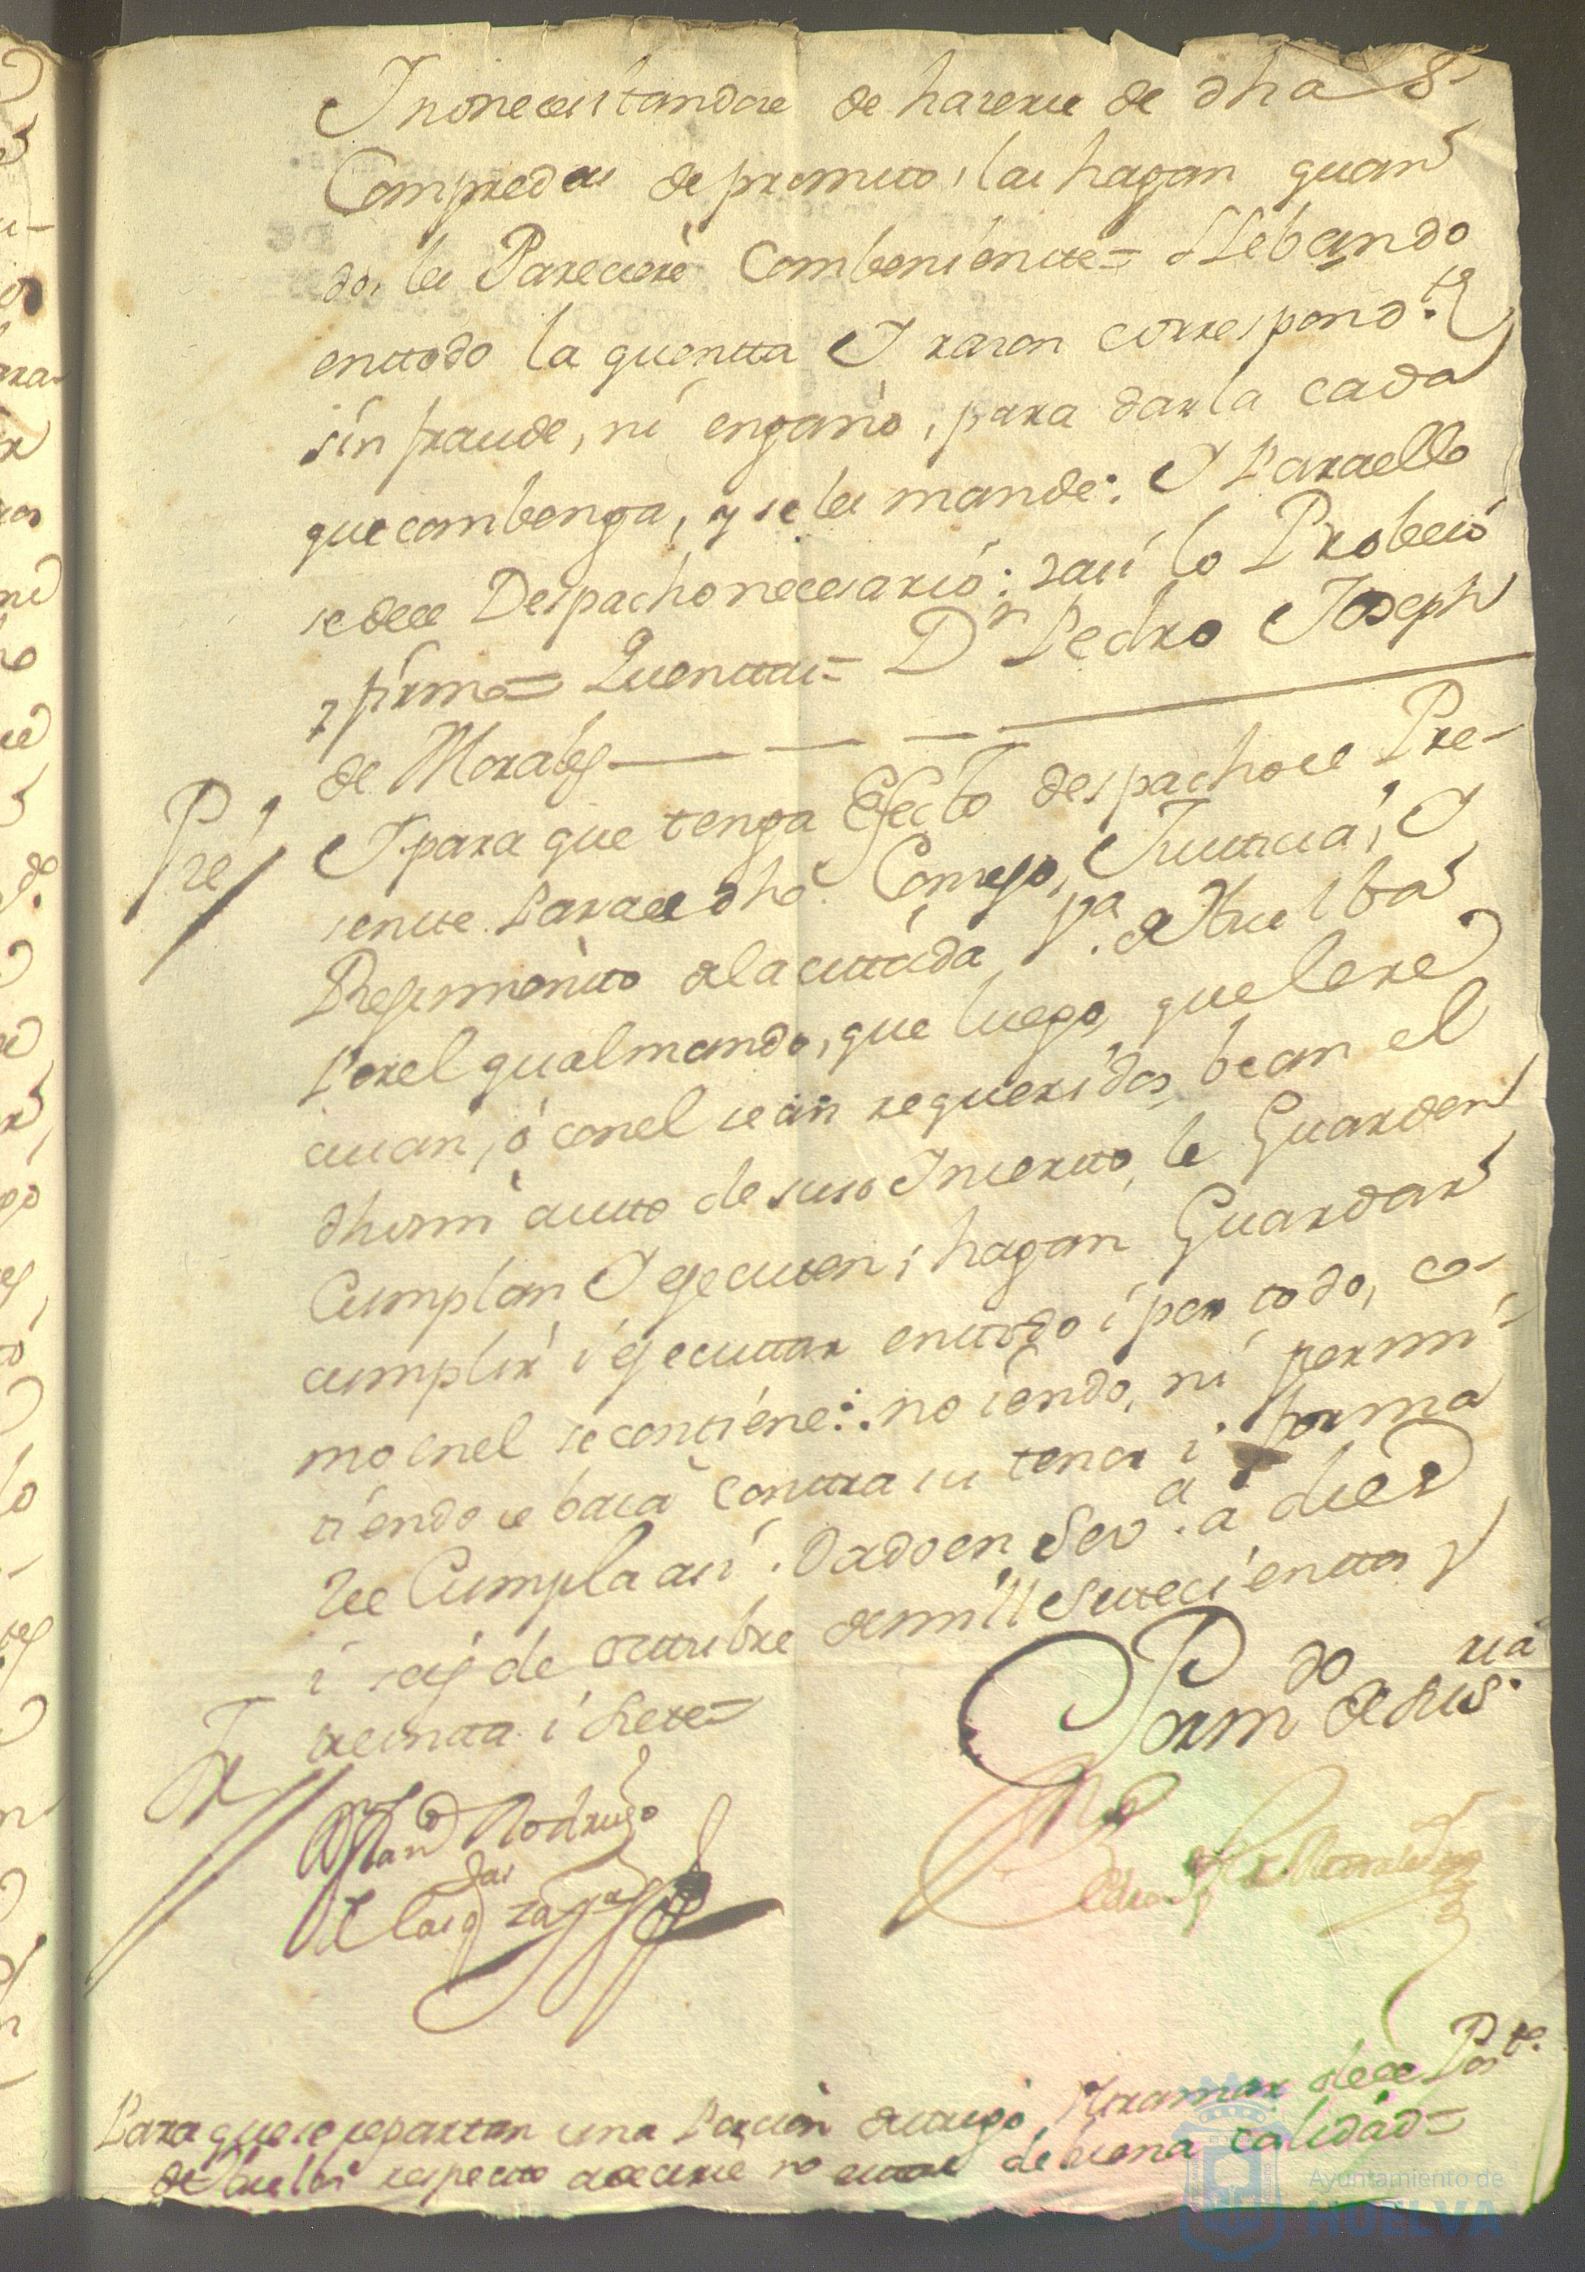 I nonecesitandose de hacerse de dhas
Compredas depromtto, las hagan quan
do, les Pareciere Combenientte= Llebando
enttodo la quentta I razon correspond.te
sin fraude, ni engaño, para darla cada
que combenga, y se les mande: I Paraello
sedeee Despacho necesario: Iasi lo Probeió
y firmo= Quenttas= Dn Pedro Joseph
de Morales
Pre
I para que tenga Efecto despachoel Pre-
sentte Paraee dho Consejo, Justticia, I
Regimientto dela cittada Va. de Huelba
Porel qual mando, que luego, quelere
civan, ó conel sean requeridos, bean el
dhomi autto de suso Inserto, le Guarden
Cumplan I ejecuten, i hagan Guardar
cumplir i ejecuttar enttodo i por todo, co-
mo enel secontiene: no iendo, ni permi-
tiendo se baia conttra su tenor i forma
Ise Cumpla asi. Dado en Seva. a diez
i seis de octtubre demill Settecienttos y
treintta i siete=
Pre
Firmdo de Susria
Rodrigo
de las
Pedro Morales
Para que se repartan una Porcion de trigo deese Postto.
de Huelba respectto a decirse no estar de buena calidad=
Ayuntamiento de
HUELVA